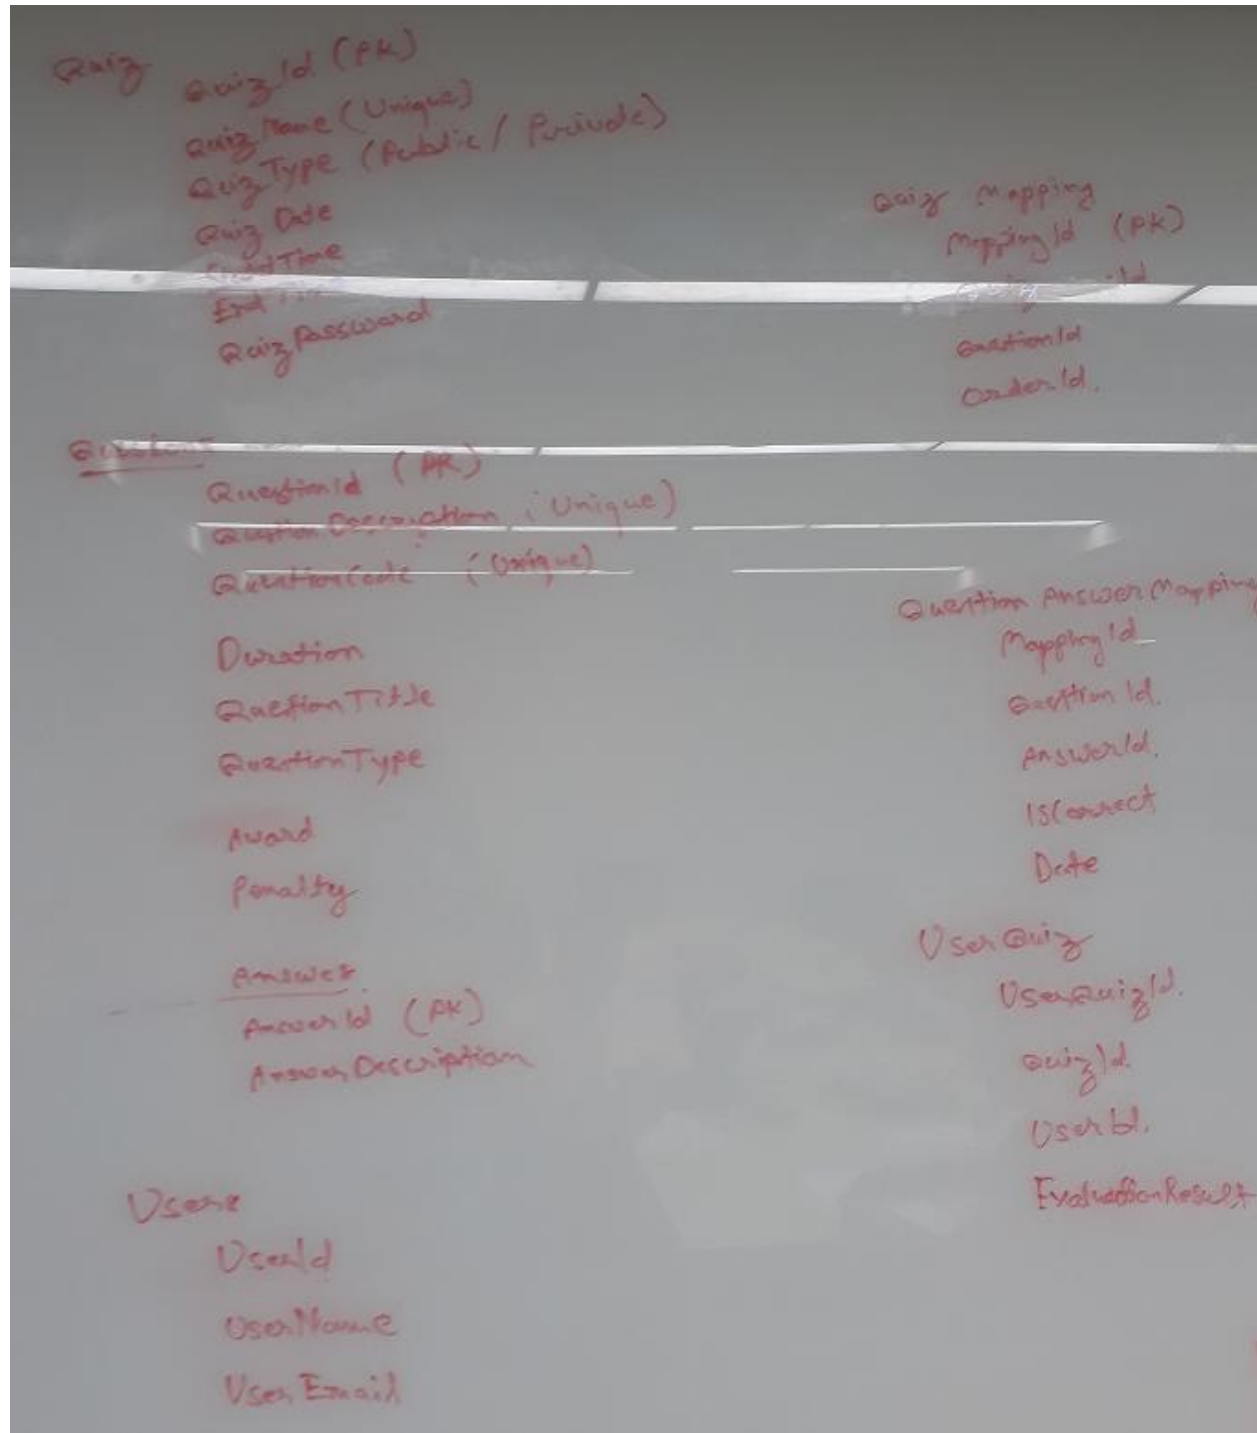 Quiz
QuizId (PK)
QuizName (Unique)
QuizType (Public / Private)
Quiz Date
Time
End
QuizPassword
Questions
QuestionId (PK)
Question Description (Unique)
QuestionCode (Unique)
Duration
QuestionTitle
QuestionType
Award
Penalty
Answer
AnswerId (PK)
AnswerDescription
Users
UserId
UserName
UserEmail
Quiz Mapping
MappingId (PK)
Id
QuestionId
OrderId.
Question Answer Mapping
MappingId
Question Id.
AnswerId.
IsCorrect
Date
User Quiz
UserQuizId.
QuizId.
UserId.
EvaluationResult